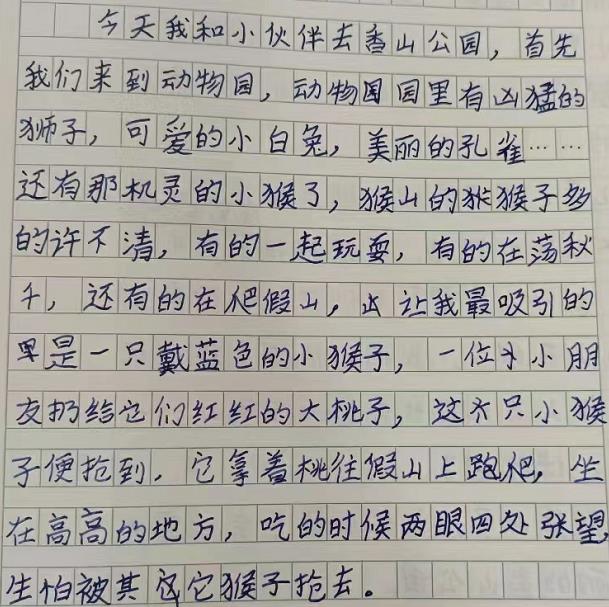 今天我和小伙伴去香山公园，首先
我们来到动物园，动物园园里有凶猛的
狮子，可爱的小白兔，美丽的孔雀……
还有那机灵的小猴了，猴山的猴子多
的许不清，有的一起玩耍，有的在荡秋
千，还有的在爬假山，让我最吸引的
是一只戴蓝色的小猴子，一位小朋
友扔给它们红红的大桃子，这只小猴
子便抢到，它拿着桃往假山上跑爬，坐
在高高的地方，吃的时候两眼四处张望，
生怕被其它猴子抢去。